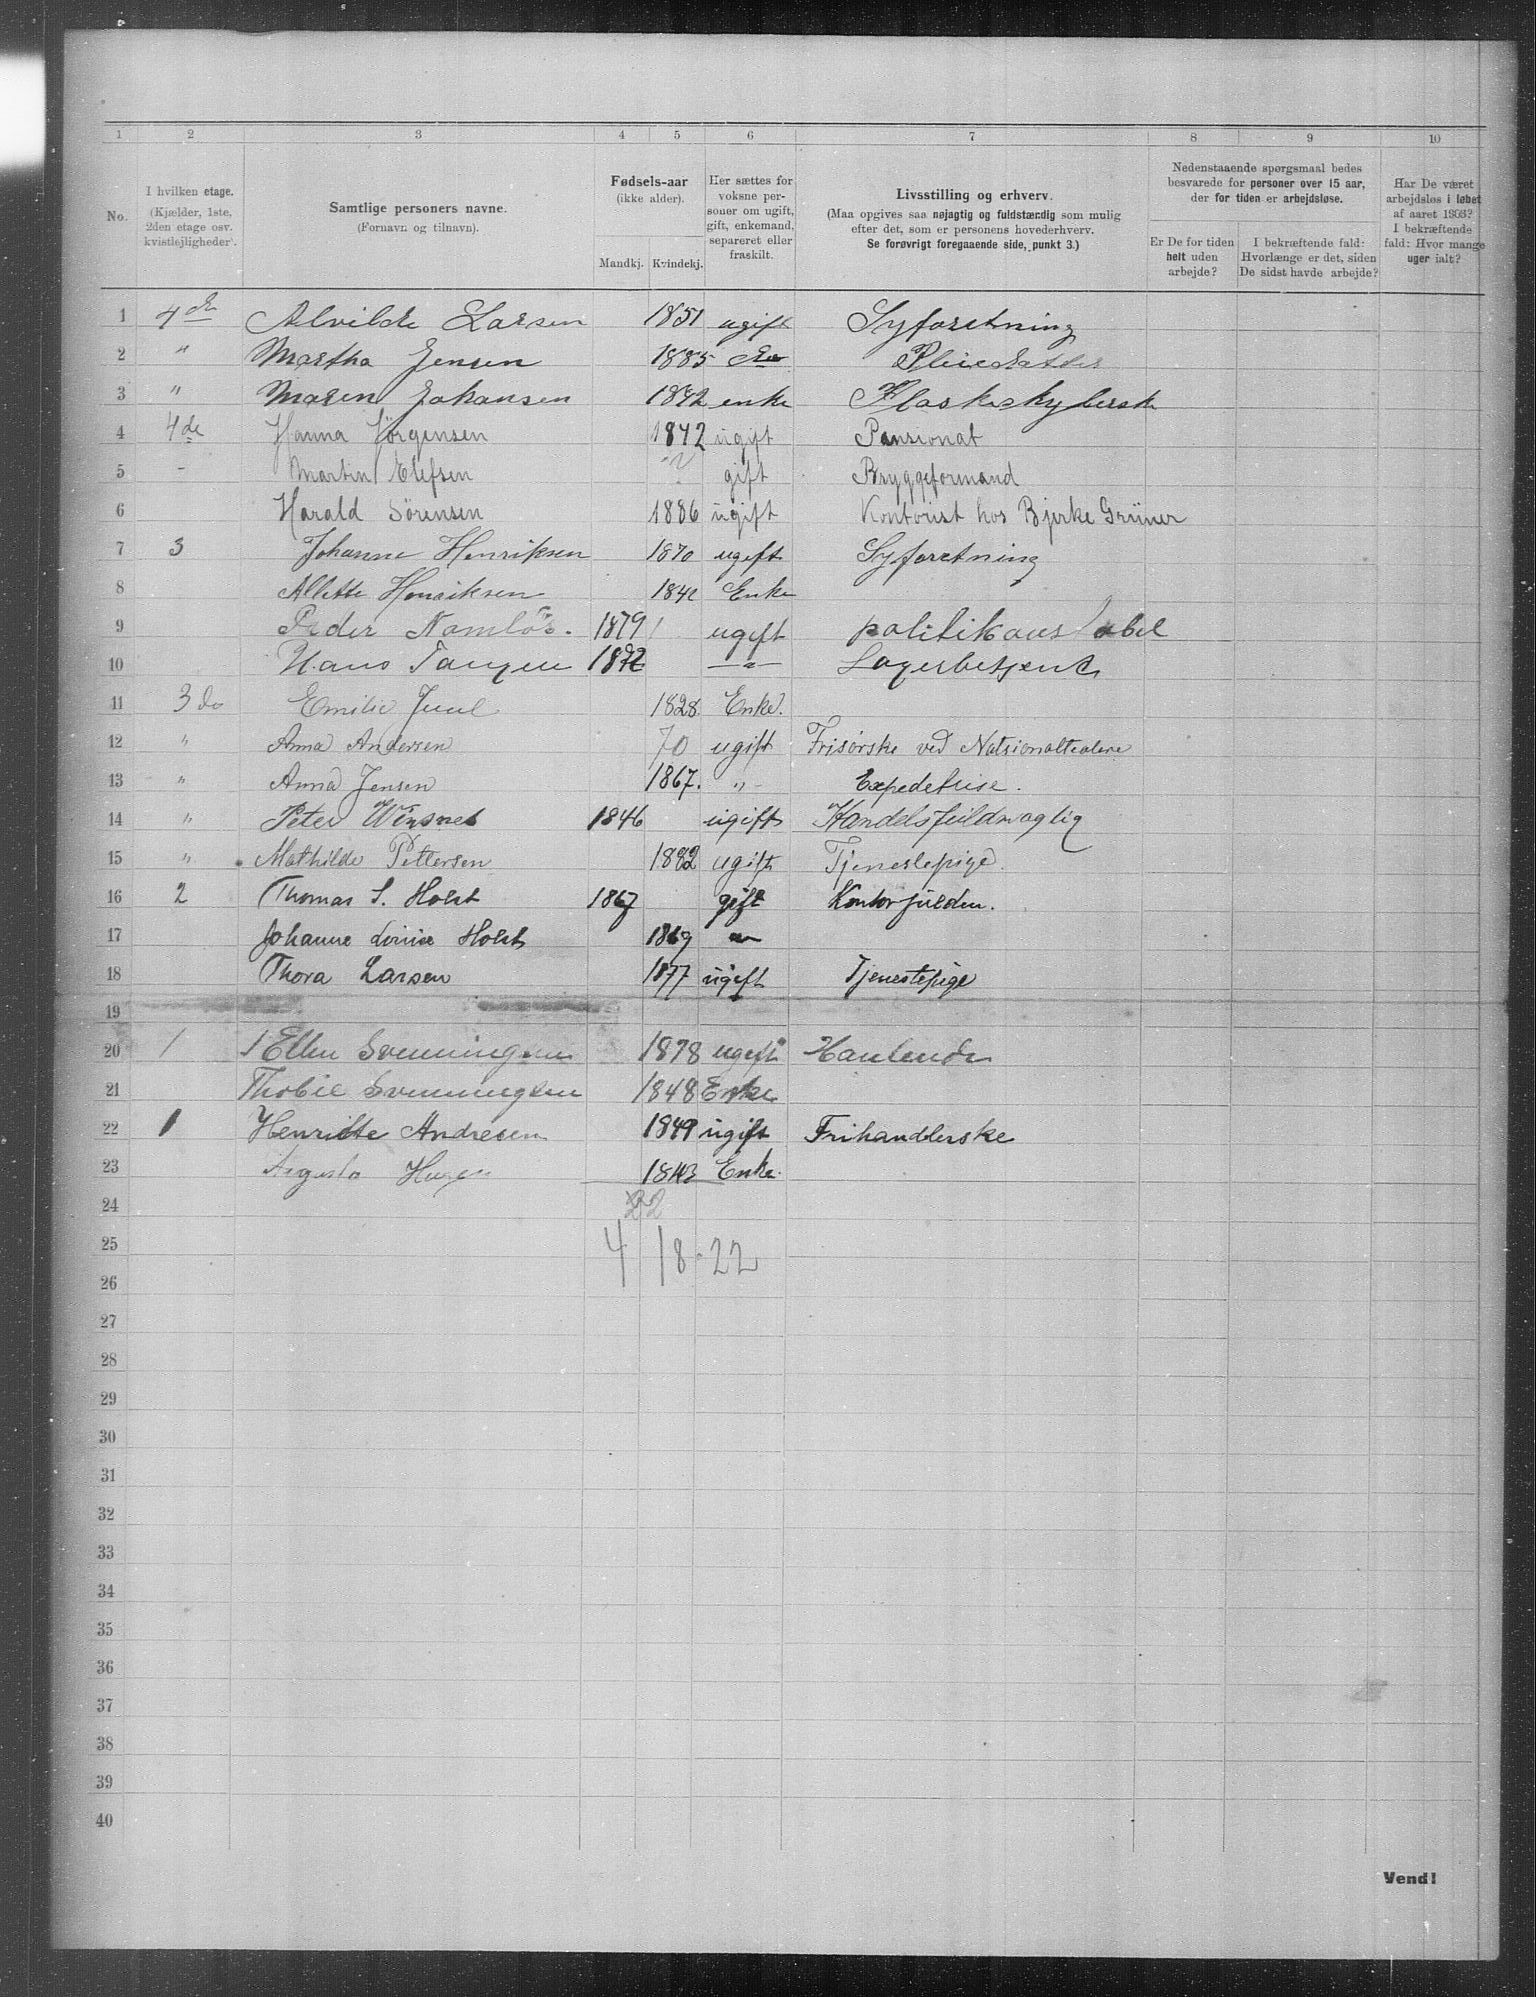 1 2 3 4 5 6 7 8 9 10
No.
I hvilken etage.
(Kjælder, 1ste,
2den etage osv.
kvistlejligheder).
Samtlige personers navne.
(Fornavn og tilnavn).
Fødsels-aar
(ikke alder).
Mandkj. Kvindekj.
Her sættes for
voksne per-
soner om ugift,
gift, enkemand,
separeret eller
fraskilt.
Livsstilling og erhverv.
(Maa opgives saa nøjagtig og fuldstændig som mulig
efter det, som er personens hovederhverv.
Se forøvrigt foregaaende side, punkt 3.)
Nedenstaaende spørgsmaal bedes
besvarede for personer over 15 aar,
der for tiden er arbejdsløse.
Er De for tiden
helt uden
arbejde?
I bekræftende fald:
Hvorlænge er det, siden
De sidst havde arbejde?
Har De været
arbejdsløs i løbet
af aaret 1903?
I bekræftende
fald: Hvor mange
uger ialt?
1 4de Alvilde Larsen 1851 ugift Syforetning
2 " Martha Jensen 1885 do
3 " Maren Johansen 1842 enke
4 4de Hanna Jørgensen 1842 ugift Pansionat
5 - Martin Elefsen ? gift Bryggeformand
6 Harald Sörensen 1886 ugift Kontorist hos Bjerke Grüner
7 3 Johanne Henriksen 1870 ugeft Syforetning
8 Allette Henriksen 184 Enke
9 Peder 1879 ugeft
10 Hans Tangen 1872 — " — Lagerbetjent
11 3 do Emilie Juul 1828 Enke.
12 " Anna Andersen 70 ugift Frisørske ved Natsionalteatere
13 " Anna Jensen 1867. " Expedetrise.
14 " Peter Winsnes 1846 ugift Handelsfuldmægtig
15 " Mathilde Pettersen 1882 ugift Tjenestepige.
16 2 Thomas S. Holst 1867 gift
17 Johanne Louise Holst 1869 "
18 Thora Larsen 1877 ugeft Tjenestepige
19
20 1 Ellen Svenningsen 1878 ugeft
21 Svenningsen 1848 Enke
22 1 Henriette Andresen 1849 ugift Frihandlerske
23 Augusta 1843 Enke.
24 22
25 4 18 - 22
26
27
28
29
30
31
32
33
34
35
36
37
38
39
40
Vend!